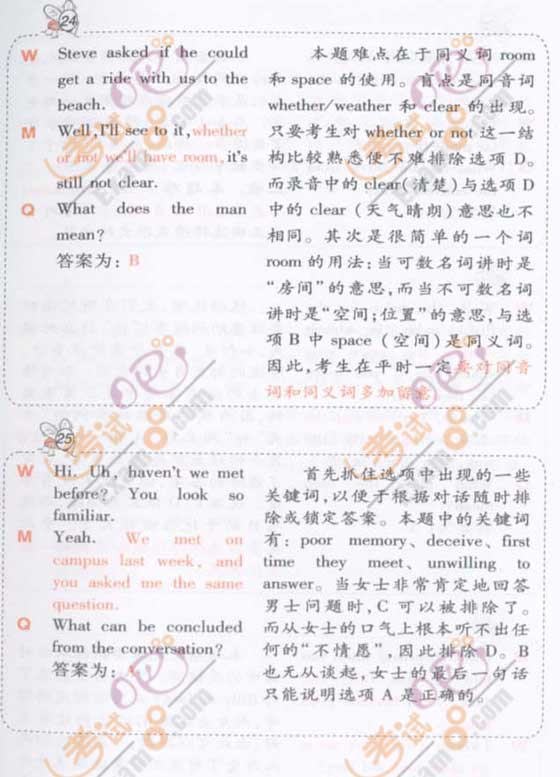 24
W Steve asked if he could
get a ride with us to the
beach.
M Well, I'll see to it, whether
or not we'll have room, it's
still not clear.
Q What does the man
mean?
答案为：B
本题难点在于同义词 room
和 space 的使用。盲点是同音词
whether/weather 和 clear 的出现。
只要考生对 whether or not 这一结
构比较熟悉便不难排除选项 D。
而录音中的 clear(清楚)与选项 D
中的 clear（天气晴朗）意思也不
相同。其次是很简单的一个词
room 的用法：当可数名词讲时是
“房间”的意思，而当不可数名词
讲时是“空间；位置”的意思，与选
项 B 中 space（空间）是同义词。
因此，考生在平时一定要对同音
词和同义词多加留意
25
W Hi. Uh, haven't we met
before? You look so
familiar.
M Yeah. We met on
campus last week, and
you asked me the same
question.
Q What can be concluded
from the conversation?
答案为：A
首先抓住选项中出现的一些
关键词，以便于根据对话随时排
除或锁定答案。本题中的关键词
有：poor memory、deceive、first
time they meet、unwilling to
answer。当女士非常肯定地回答
男士问题时，C 可以被排除了。
而从女士的口气上根本听不出任
何的“不情愿”，因此排除 D。B
也无从谈起，女士的最后一句话
只能说明选项 A 是正确的。
考试
Exam
.com